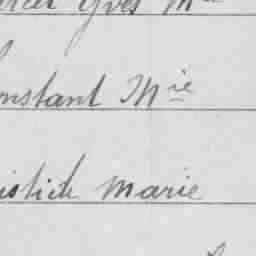 Yves M
Constant Mie
istide Marie